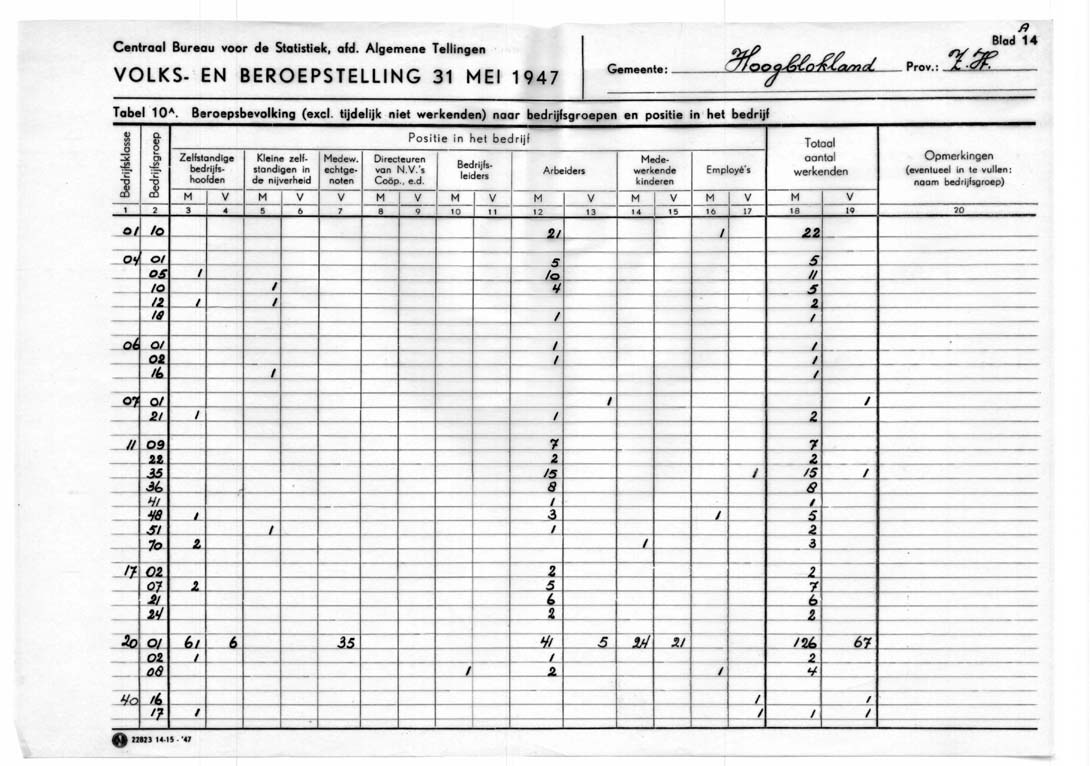 A
Blad 14
Centraal Bureau voor de Statistiek, afd. Algemene Tellingen
VOLKS- EN BEROEPSTELLING 31 MEI 1947
Gemeente: Hoogblokland Prov.: Z.H.
Tabel 10A. Beroepsbevolking (excl. tijdelijk niet werkenden) naar bedrijfsgroepen en positie in het bedrijf
Bedrijfsklasse
Bedrijfsgroep
Positie in het bedrijf
Zelfstandige bedrijfs- hoofden
Kleine zelf- standigen in de nijverheid
Medew. echtge- noten
Directeuren van N.V.'s Coöp., e.d.
Bedrijfs- leiders
Arbeiders
Mede- werkende kinderen
Employé's
Totaal aantal werkenden
Opmerkingen (eventueel in te vullen: naam bedrijfsgroep)
M V M V V M V M V M V M V M V M V
1 2 3 4 5 6 7 8 9 10 11 12 13 14 15 16 17 18 19 20
01 10 21 1 22
04 01 5 5
05 1 10 11
10 1 4 5
12 1 1 2
18 1 1
06 01 1 1
02 1 1
16 1 1
07 01 1 1
21 1 1 2
11 09 7 7
22 2 2
35 15 1 15 1
36 8 8
41 1 1
48 1 3 1 5
51 1 1 2
70 2 1 3
17 02 2 2
07 2 5 7
21 6 6
24 2 2
20 01 61 6 35 41 5 24 21 126 67
02 1 1 2
08 1 2 1 4
40 16 1 1
17 1 1 1 1
22823 14-15 - '47